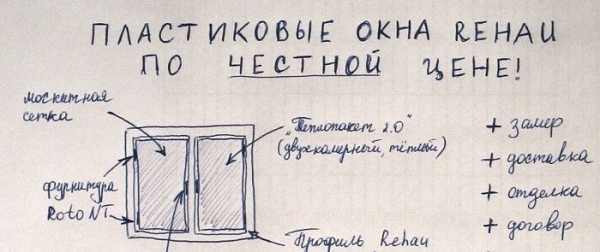 ПЛАСТИКОВЫЕ ОКНА REHAU
ПО ЧЕСТНОЙ ЦЕНЕ!
москитная
сетка
„Теплопакет 2.0"
(двухкамерный, тёплый)
фурнитура
Roto NT
Профиль Rehau
+ замер
+ доставка
+ отделка
+ договор